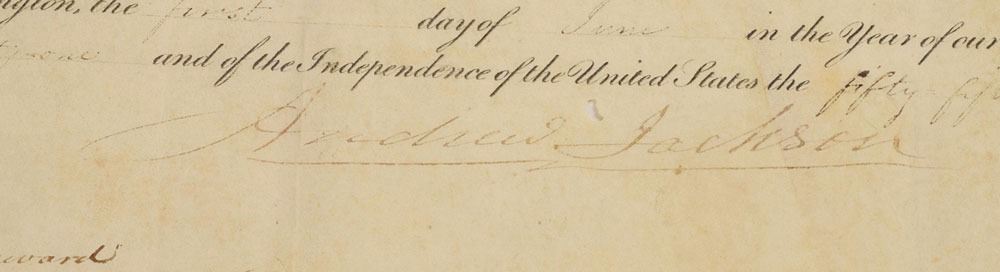 ngton, the first day of June in the Year of our
ty one and of the Independence of the United States the fifty-fif
Andrew Jackson
ward